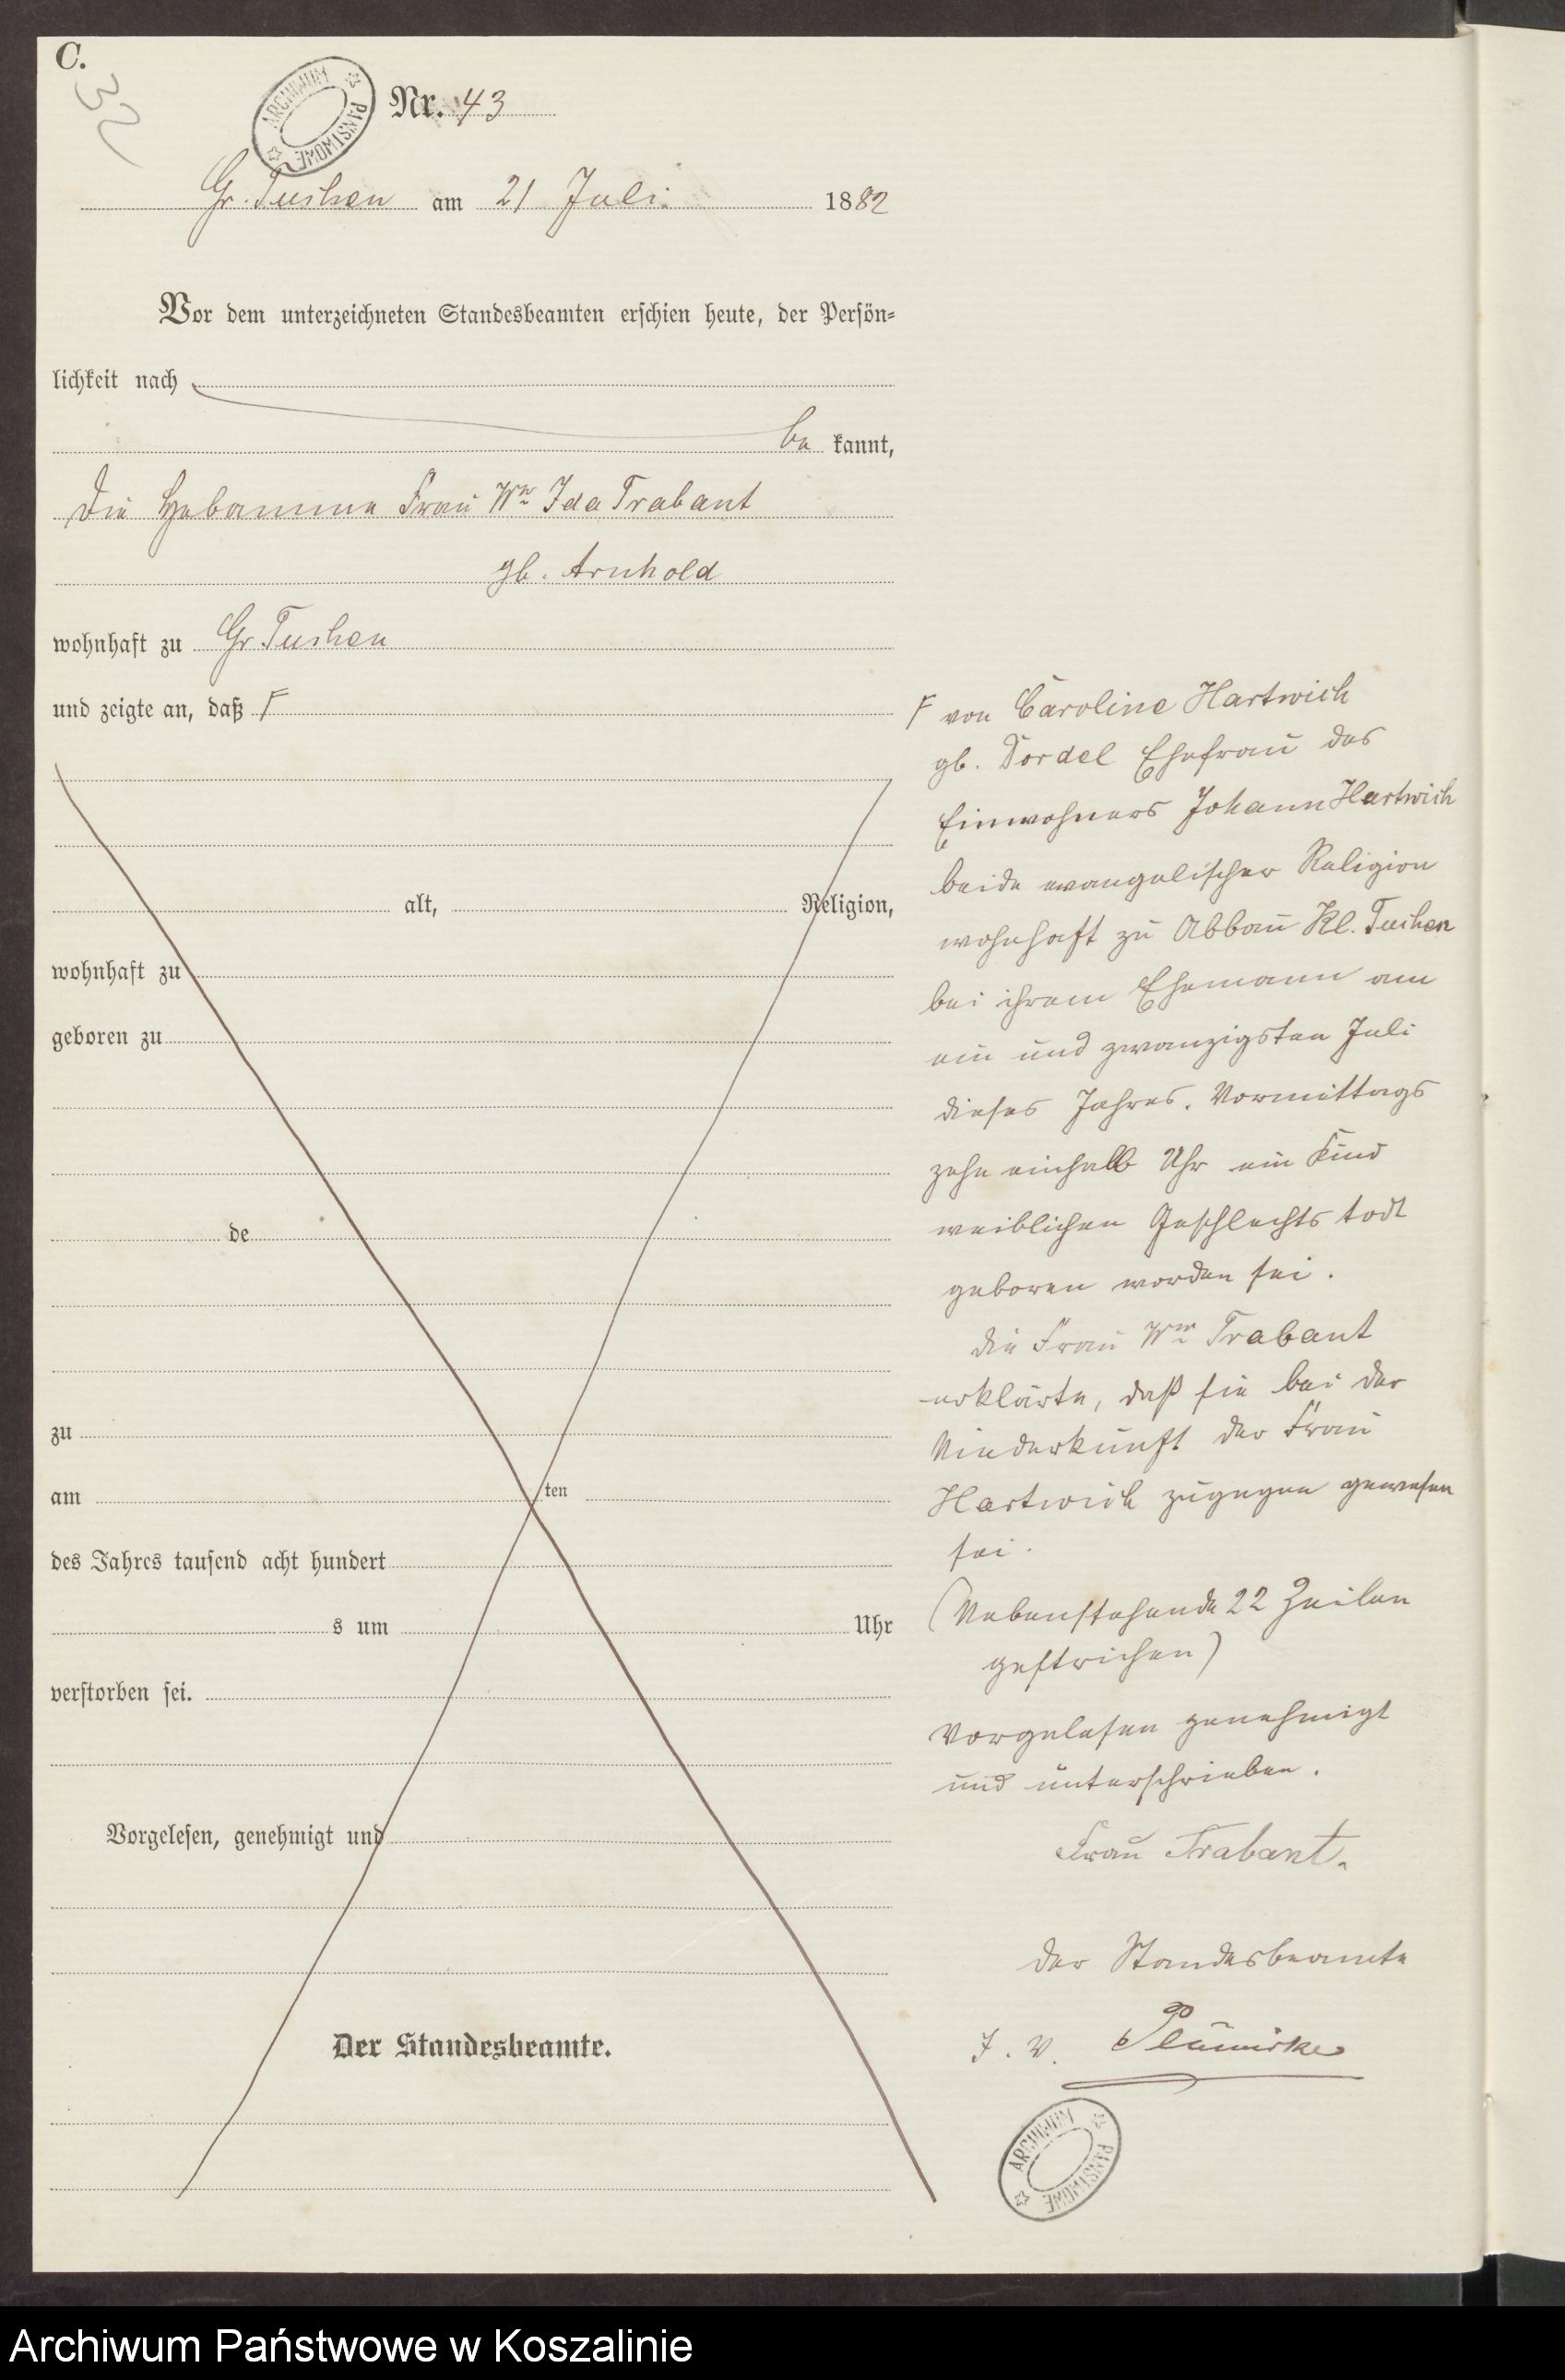 C.
32
ARCHIWUM PAŃSTWOWE
Nr. 43
Gr. Tuchen am 21 Juli 1882
Vor dem unterzeichneten Standesbeamten erschien heute, der Persön-
lichkeit nach
be kannt,
die Hebamme Frau Ww Ida Trabant
gb. Arnhold
wohnhaft zu Gr Tuchen
und zeigte an, daß F
alt, Religion,
wohnhaft zu
geboren zu
de
zu
am ten
des Jahres tausend acht hundert
s um Uhr
verstorben sei.
Vorgelesen, genehmigt und
Der Standesbeamte.
F von Caroline Hartwich
gb. Dordel Ehefrau des
Einwohners Johann Hartwich
beide evangelischer Religion
wohnhaft zu Abbau Kl. Tuchen
bei ihrem Ehemann am
ein und zwanzigsten Juli
dieses Jahres, Vormittags
zehn einhalb Uhr ein Kind
weiblichen Geschlechts todt
geboren worden sei.
die Frau Ww Trabant
erklärte, daß sie bei der
Niederkunft der Frau
Hartwich zugegen gewesen
sei.
(Nebenstehende 22 Zeilen
gestrichen)
Vorgelesen genehmigt
und unterschrieben.
Frau Trabant.
der Standesbeamte
J. V.
ARCHIWUM PAŃSTWOWE
Archiwum Państwowe w Koszalinie